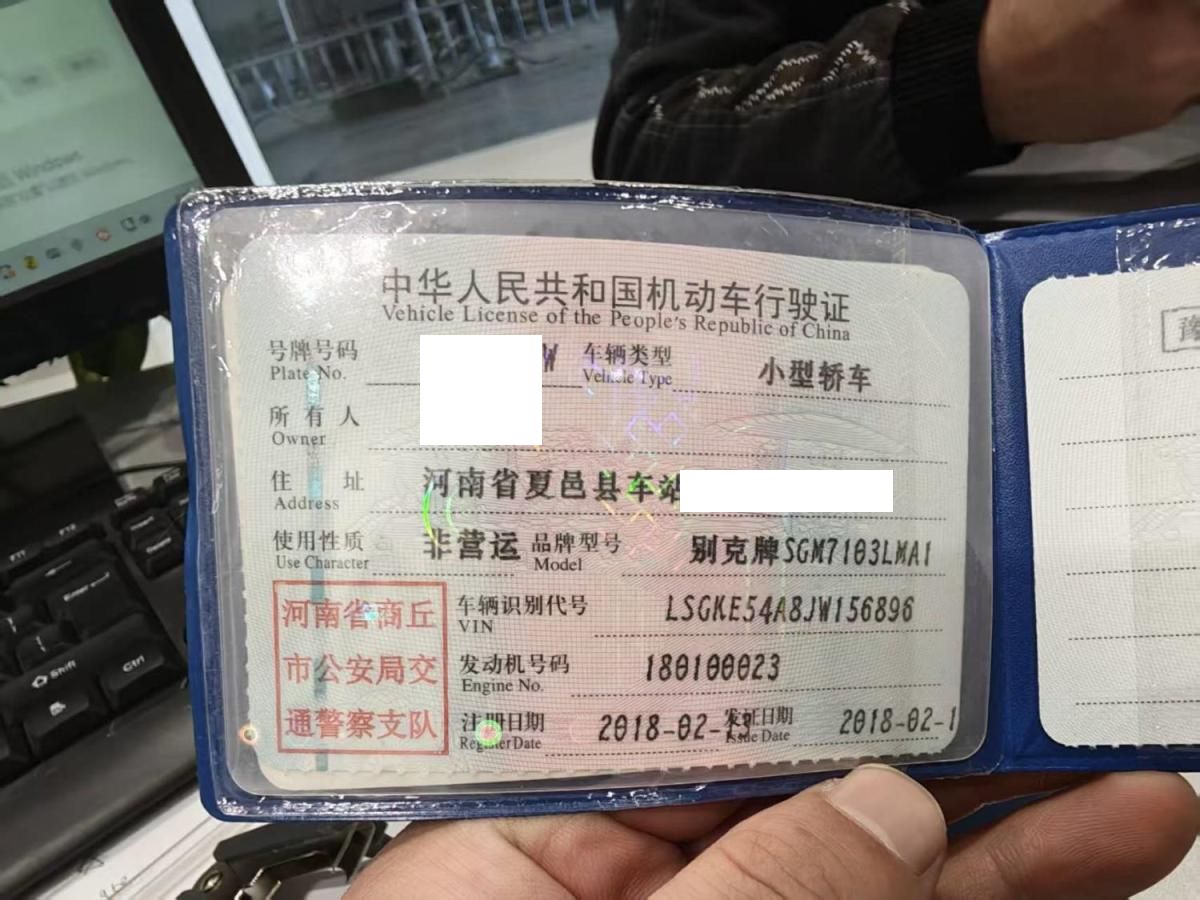 Windows
中华人民共和国机动车行驶证
Vehicle License of the People's Republic of China
号牌号码 W 车辆类型 小型轿车
Plate No. Vehicle Type
所有人
Owner
住址 河南省夏邑县车站
Address
使用性质 非营运 品牌型号 别克牌SGM7103LMA1
Use Character Model
河南省商丘
市公安局交
通警察支队
车辆识别代号 LSGKE54A8JW156896
VIN
发动机号码 180100023
Engine No.
注册日期 2018-02- 发证日期 2018-02-1
Register Date Issue Date
豫
F12
Enter
Shift
Ctrl